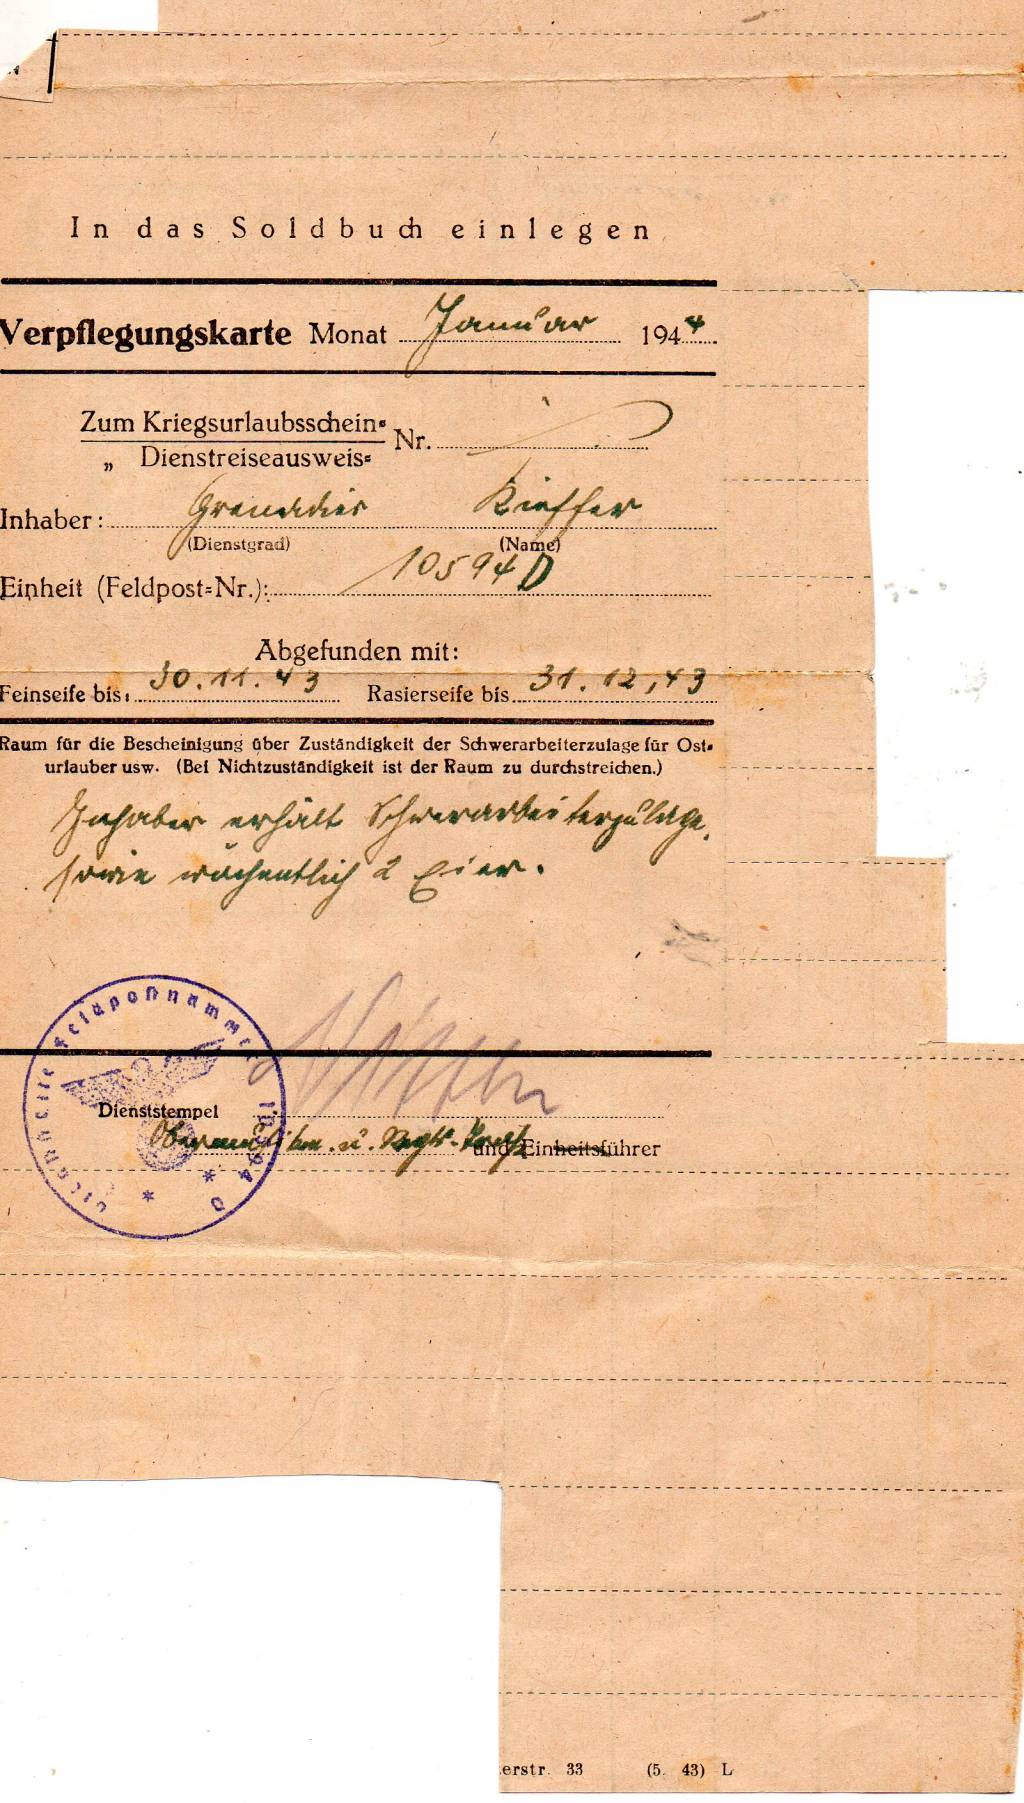 In das Soldbuch einlegen
Verpflegungskarte Monat Januar 1944
Zum Kriegsurlaubsschein=
„ Dienstreiseausweis= Nr.
Inhaber: Grenadier Kieffer
(Dienstgrad) (Name)
Einheit (Feldpost=Nr.): 10594 D
Abgefunden mit:
Feinseife bis: 30.11.43 Rasierseife bis 31.12.43
Raum für die Bescheinigung über Zuständigkeit der Schwerarbeiterzulage für Ost=
urlauber usw. (Bei Nichtzuständigkeit ist der Raum zu durchstreichen.)
Inhaber erhält Schwerarbeiterzulage,
sowie wöchentlich 2 Eier.
Dienststelle Feldpostnummer 10594 D
Dienststempel
und Einheitsführer
erstr. 33 (5. 43) L